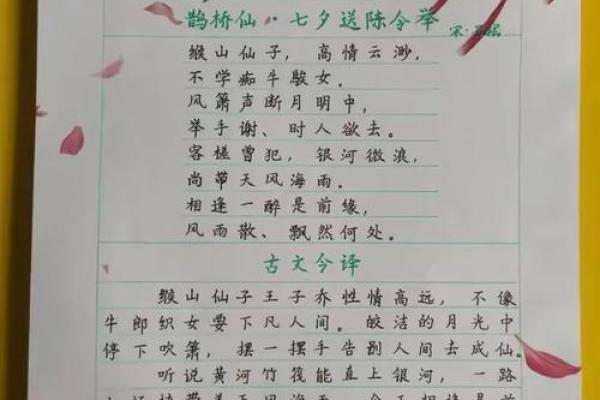 鹊桥仙·七夕送陈令举 宋·苏轼
缑山仙子，高情云渺，
不学痴牛騃女。
风箫声断月明中，
举手谢、时人欲去。
客槎曾犯，银河微浪，
尚带天风海雨。
相逢一醉是前缘，
风雨散、飘然何处。
古文今译
缑山仙子王子乔性情高远，不像
牛郎织女要下凡人间。皎洁的月光中
停下吹箫，摆一摆手告别人间去成仙。
听说黄河竹筏能直上银河，一路